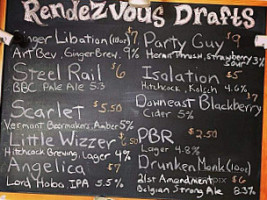 Rendezvous Drafts
Ginger Libation (10oz) $7
Art Bev, Ginger Brev. 9%
Steel Rail $6
BBC Pale Ale 5.3
Scarlet $5.50
Vermont Beermakers, Amber 5%
Little Wizzer
Hitchcock Brewing, Lager 4%
Angelica $7
Lord Hobo, IPA 5.5%
Party Guy $9
Strawberry Sour 3%
Isolation $5
Hitchcock, Kolsch 4.6%
Downeast Blackberry
Cider 5%
PBR $2.50
Lager 4.8%
Drunken Monk (10oz)
21st Amendment $6
Belgian Strong Ale 8.3%